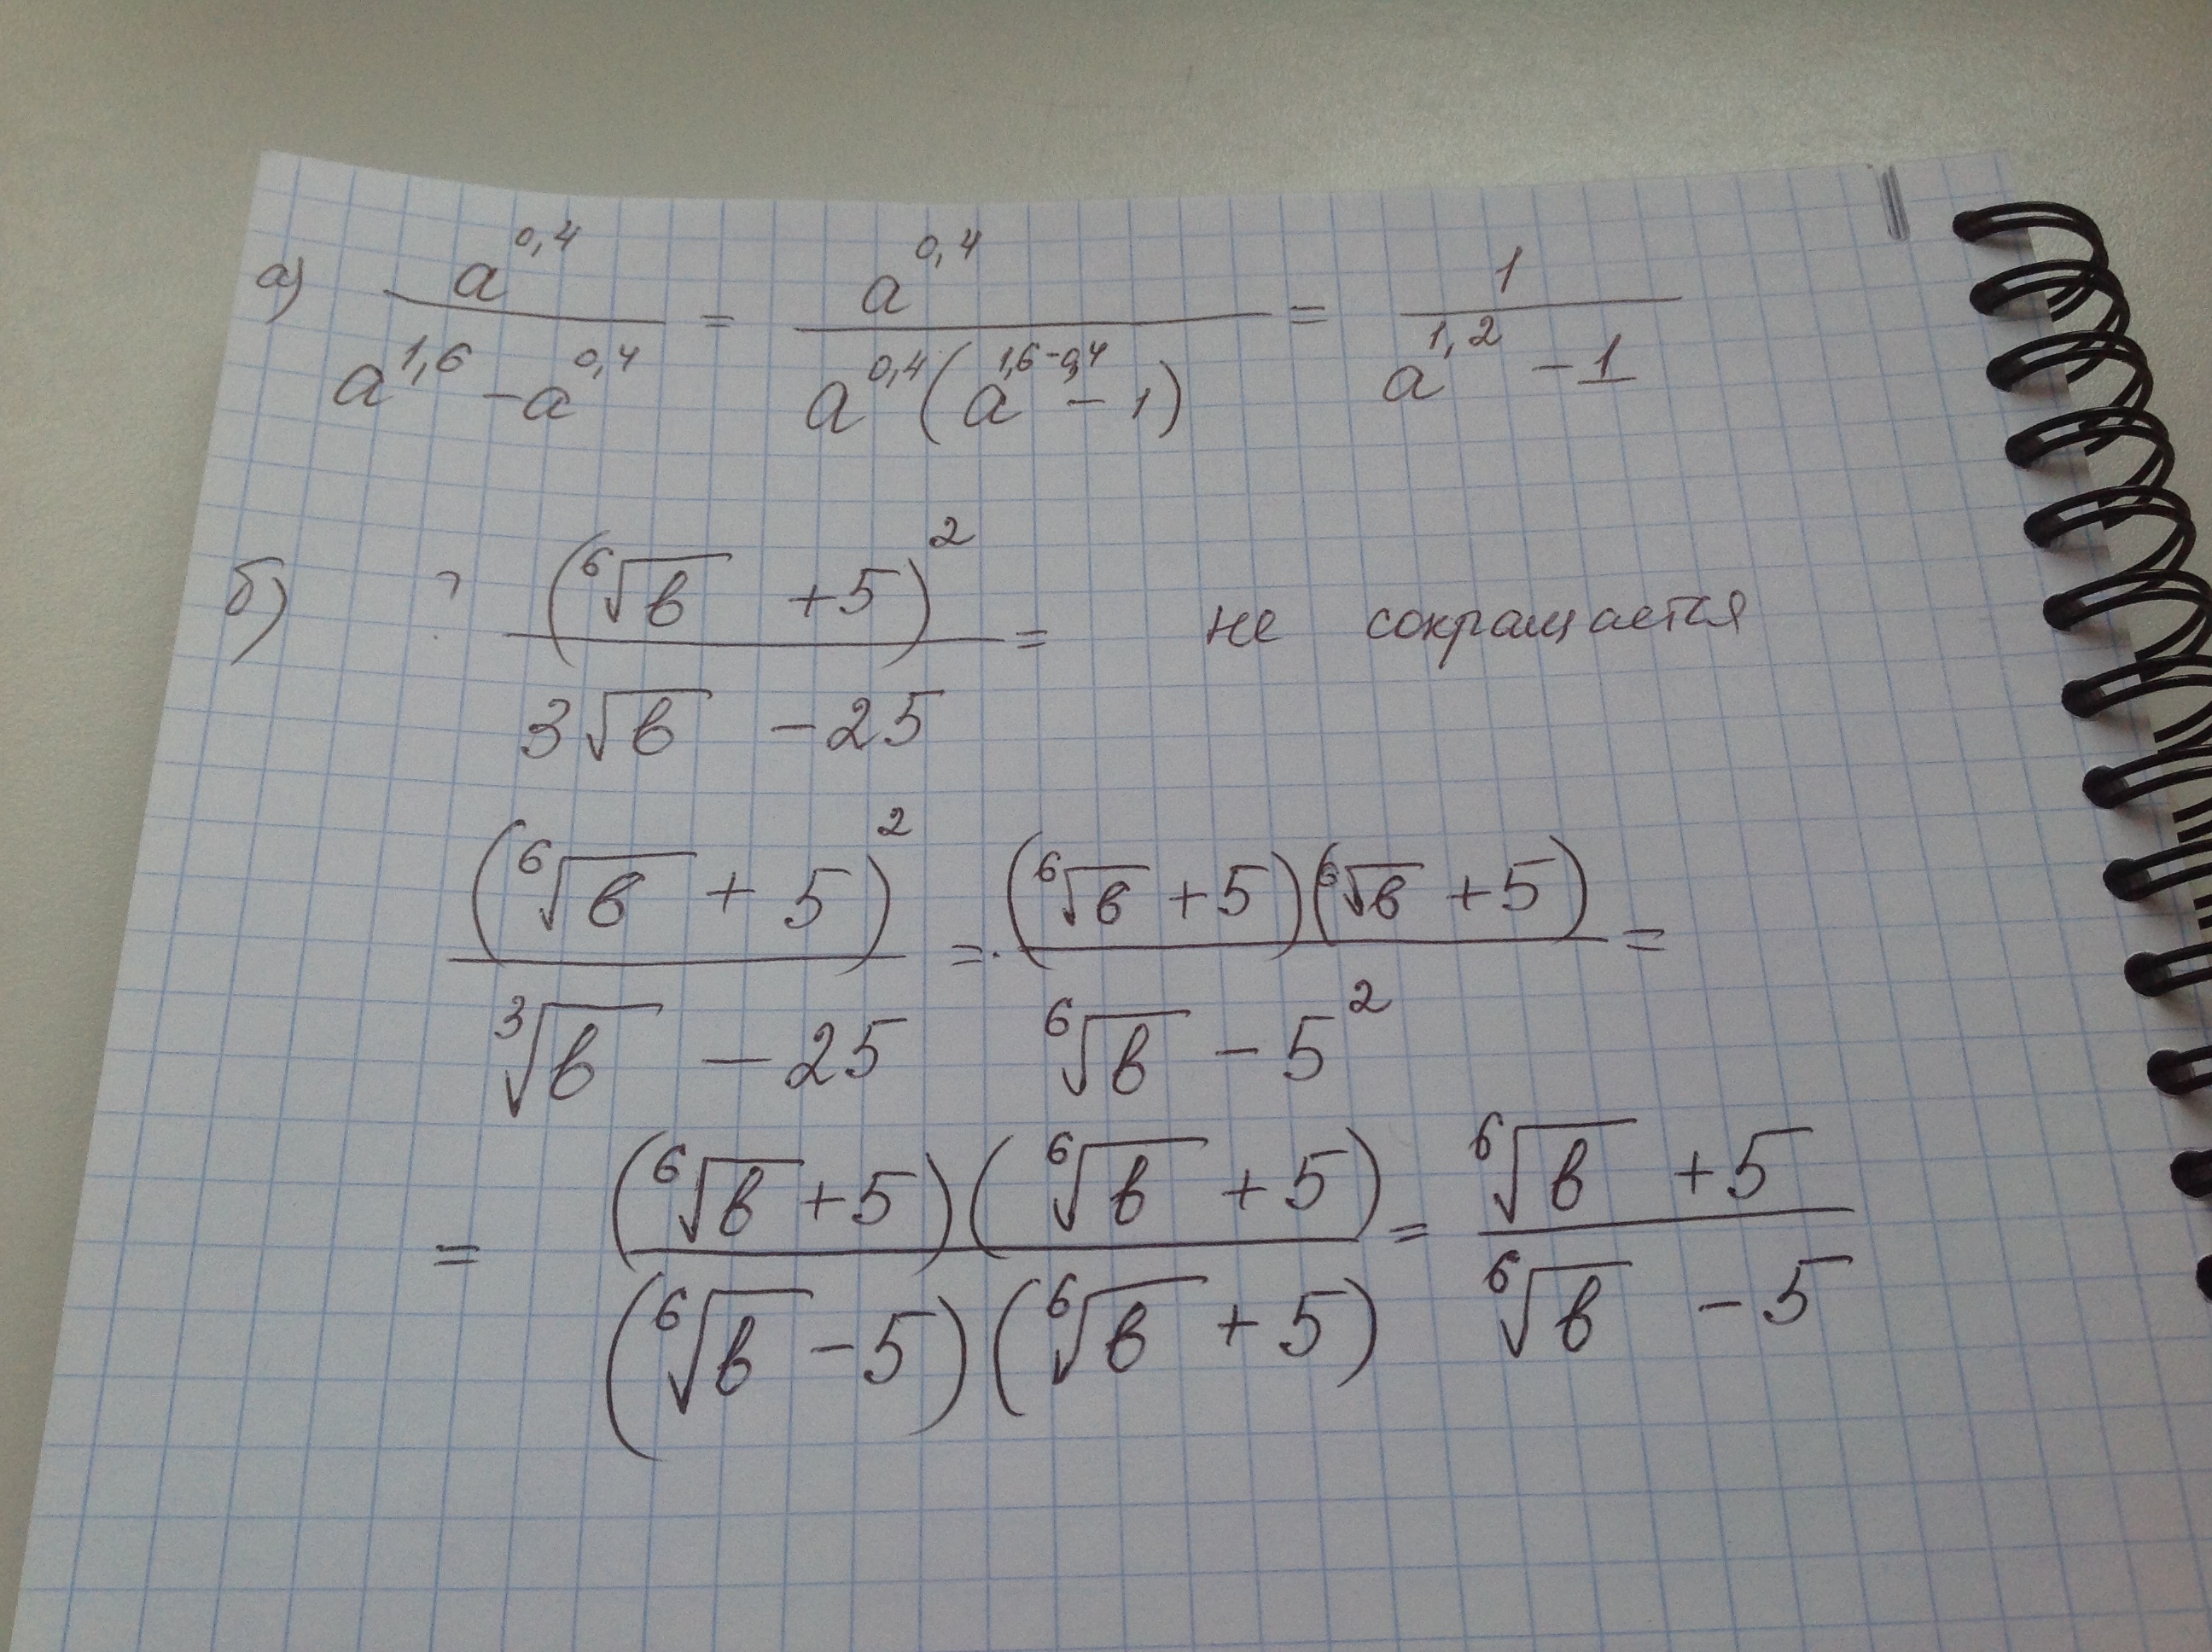 а) a^0,4 / (a^1,6 - a^0,4) = a^0,4 / (a^0,4 (a^(1,6-0,4) - 1)) = 1 / (a^1,2 - 1)
б) ? (⁶√в + 5)² / (3√в - 25) = не сокращается
(⁶√в + 5)² / (³√в - 25) = (⁶√в + 5)(⁶√в + 5) / (⁶√в - 5²) =
= (⁶√в + 5)(⁶√в + 5) / ((⁶√в - 5)(⁶√в + 5)) = (⁶√в + 5) / (⁶√в - 5)